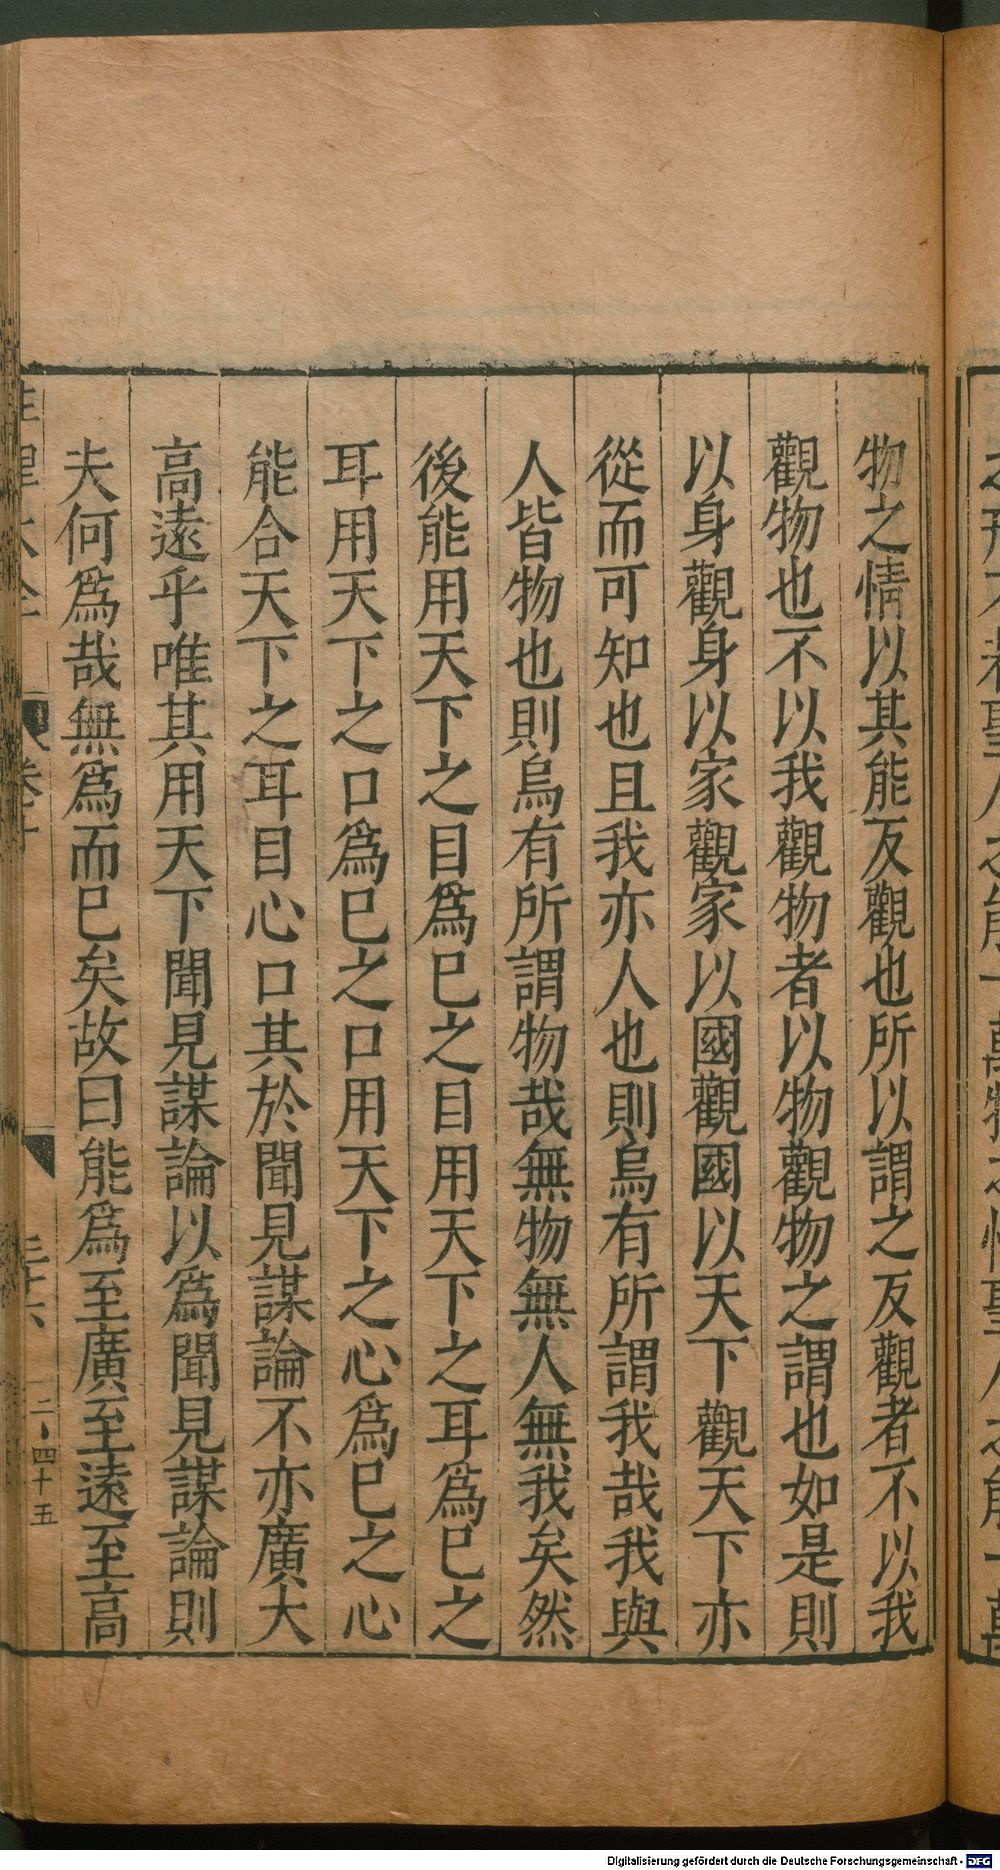 物之情以其能反觀也所以謂之反觀者不以我
觀物也不以我觀物者以物觀物之謂也如是則
以身觀身以家觀家以國觀國以天下觀天下亦
從而可知也且我亦人也則烏有所謂我哉我與
人皆物也則烏有所謂物哉無物無人無我矣然
後能用天下之目爲巳之目用天下之耳爲巳之
耳用天下之口爲巳之口用天下之心爲巳之心
能合天下之耳目心口其於聞見謀論不亦廣大
高遠乎唯其用天下聞見謀論以爲聞見謀論則
夫何爲哉無爲而巳矣故曰能爲至廣至遠至高
二、四十五
Digitalisierung gefördert durch die Deutsche Forschungsgemeinschaft - DFG